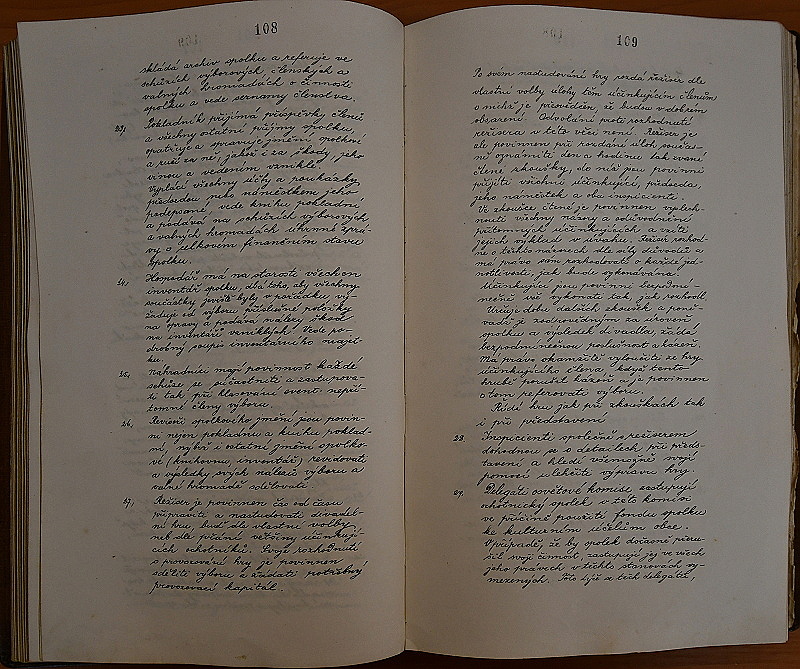 108
skládá archiv spolku a referuje ve
schůzích výborových, členských a
valných hromadách o činnosti
spolku a vede seznamy členstva.
23, Pokladník přijímá příspěvky členů
a všechny ostatní příjmy spolku,
opatruje a spravuje jmění spolkové
a ručí za ně, jakož i za škody, jeho
vinou a vedením vzniklé.
Vyplácí všechny účty a poukázky
předsedou nebo náměstkem jeho
podepsané, vede knihu pokladní
a podává na schůzích výborových
a valných hromadách úhrnné zprá-
vy o celkovém finančním stavu
spolku.
24, Hospodář má na starosti všechen
inventář spolku, dbá toho, aby všechny
součástky jeviště byly v pořádku, vy-
žaduje od výboru příslušné položky
na opravy a podává nálezy škod
na inventáři vzniklých. Vede po-
drobný soupis inventárního majet-
ku.
25, Náhradníci mají povinnost každé
schůze se súčastniti a zastupova-
ti tak při hlasování event. nepří-
tomné členy výboru.
26, Revisoři spolkového jmění jsou povin-
ni nejen pokladnu a knihu poklad-
ní, nýbrž i ostatní jmění spolko-
vé (knihovnu, inventář) revidovati
a výsledky svých nálezů výboru a
valné hromadě sdělovati.
27, Režisér je povinnen čas od času
připraviti a nastudovati divadel-
ní hru, buď dle vlastní volby
neb dle přání většiny účinkují-
cích ochotníků. Svoje rozhodnutí
o provozování hry je povinnen
sděliti výboru a žádati potřebný
provozovací kapitál.
109
Po svém nastudování hry rozdá režisér dle
vlastní volby úlohy těm účinkujícím členům
o nichž je přesvědčen, že budou v dobrém
obsazení. Odvolání proti rozhodnutí
režiséra v této věci není. Režisér je
ale povinnen při rozdání úloh součas-
ně oznámiti den a hodinu tak zvané
čtené zkoušky, do níž jsou povinni
přijíti všichni účinkující, předseda
jeho náměstek a oba inspicienti.
Ve zkoušce čtené je povinnen vyslech-
nouti všechny názory a odůvodnění
přítomných účinkujících a vzíti
jejich výklad v úvahu. Režisér rozhod-
ne o těchto názorech dle síly důvodů a
má právo sám rozhodovati o každé jed-
notlivosti, jak bude vykonávána.
Účinkující jsou povinni bezpodmí-
nečně vše vykonati tak, jak rozhodl.
Určuje dobu dalších zkoušek a poně-
vadž je zodpovědným za úroveň
spolku a výsledek divadla, žádá
bezpodmínečnou poslušnost a kázeň.
Má právo okamžitě vyloučiti ze hry
účinkujícího člena, když tento
hrubě porušil kázeň a je povinnen
o tom referovati výboru.
Řídí hru jak při zkouškách tak
i při představení
28. Inspicienti společně s režisérem
dohodnou se o detailech při před-
stavení a hledí všemožně svojí
pomocí ulehčiti výpravu hry.
29. Delegáti osvětové komise, zastupují
ochotnický spolek v této komisi
ve příčině použití fondu spolku
ke kulturním účelům obce.
V případě, že by spolek dočasně přeru-
šil svoji činnost, zastupují jej ve všech
jeho právech v těchto stanovách vy-
mezených. Tito též z těch delegátů,